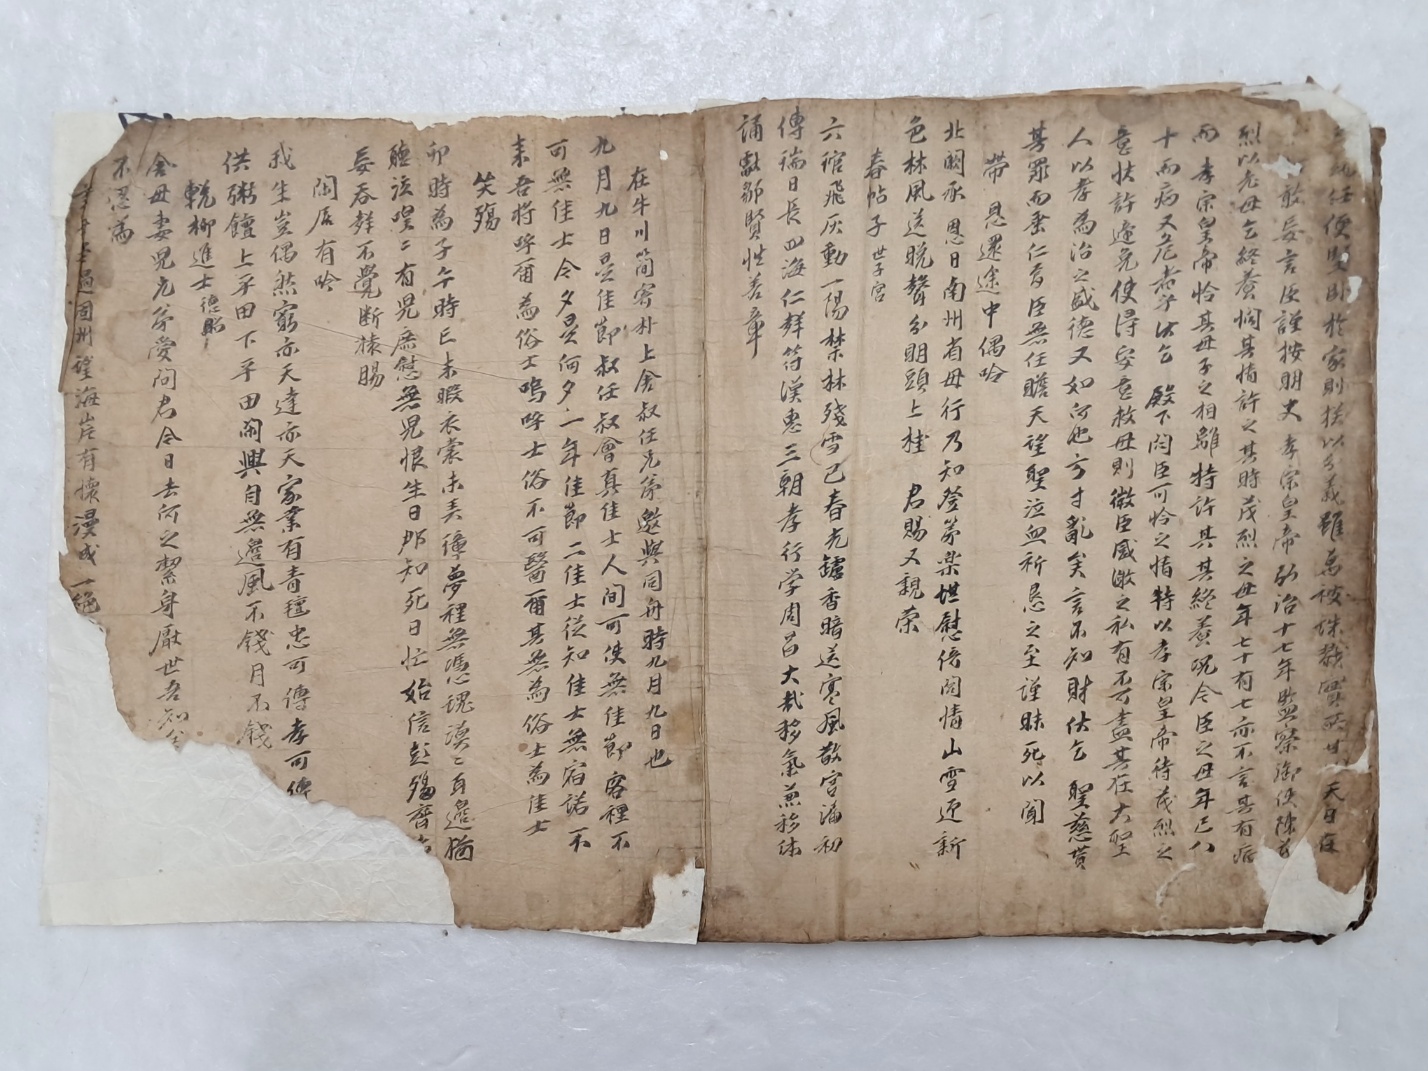 任便堅卧於家則揆以分義雖萬被誅戮實所甘 天日在
敢妄言臣謹按明史 孝宗皇帝弘治十七年監察御使陳茂
烈以老母乞終養憫其情許之其時茂烈之母年七十有七亦不言其有病
而孝宗皇帝恰其母子之相離特許其其終養況今臣之母年已八
十而病又危者乎伏乞 殿下悶臣可怜之情特以孝宗皇帝待茂烈之
意快許遞免使得安意救母則微臣感激之私有不可盡其在大聖
人以孝為治之盛德又如何也方寸亂矣言不知財伏乞 聖慈貰
其罪而垂仁焉臣無任瞻天望聖泣血祈恳之至謹昧死以聞
帶 恩還途中偶吟
北闕承 恩日南州省母行乃知登第樂堪慰倚閭情山雪迎新
色林風送晩聲分明頭上桂 君賜又親榮
春帖子 世子宮
六琯飛灰動一陽禁林殘雪已春光鑪香暗送寒風散宮漏初
傳瑞日長四海仁聲符漢惠三朝孝行学周昌大哉移氣兼移体
誦獻鄒賢性善章
在牛川簡寄朴上舍叔任兄弟邀與同舟時九月九日也
九月九日是佳節叔任叔會真佳士人间可使無佳節客裡不
可無佳士今夕是何夕一年佳節二佳士從知佳士無宿諾不
来吾將呼爾為俗士嗚呼士俗不可醫爾其無為俗士為佳士
哭殤
卯時為子午時已未暇衣裳未美傳夢裡無憑魂漠二身邊猶
聽泣喤二有兒庶慰無兒恨生日那知死日忙始信彭殤齊
妄吞聲不覺断猿腸
閑居有吟
我生豈偶然窮亦天達亦天家業有青氊忠可傳孝可傳
供粥饘上平田下平田閑興自無邊風不錢月不錢
輓柳進士德昭
舍母妻兒兄弟愛问君今日去何之潔身厭世吾知
不忍為
過固州望海岸有懷漫成一絶